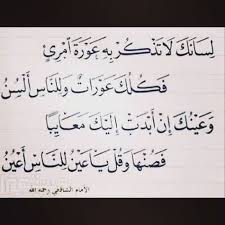 لِسَانَكَ لَا تَذْكُرْ بِهِ عَوْرَةَ امْرِئٍ
فَكُلُّكَ عَوْرَاتٌ وَلِلنَّاسِ أَلْسُنُ
وَعَيْنُكَ إِنْ أَبْدَتْ إِلَيْكَ مَعَايِبًا
فَصُنْهَا وَقُلْ يَا عَيْنُ لِلنَّاسِ أَعْيُنُ
الإمام الشافعي رحمه الله